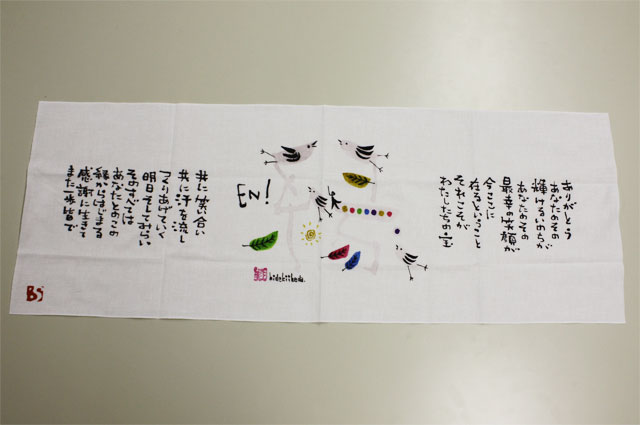 ありがとう
あなたのその
輝けるいのちが
あなたのその
最幸の笑顔が
今ここに
在るということ
それこそが
わたしたちの宝
EN!
hidekiikeda.
共に笑い合い
共に汗を流し
つくりあげていく
明日そしてみらい
そのすべては
あなたとのこの
縁からはじまる
感謝に生きて
また一歩皆で